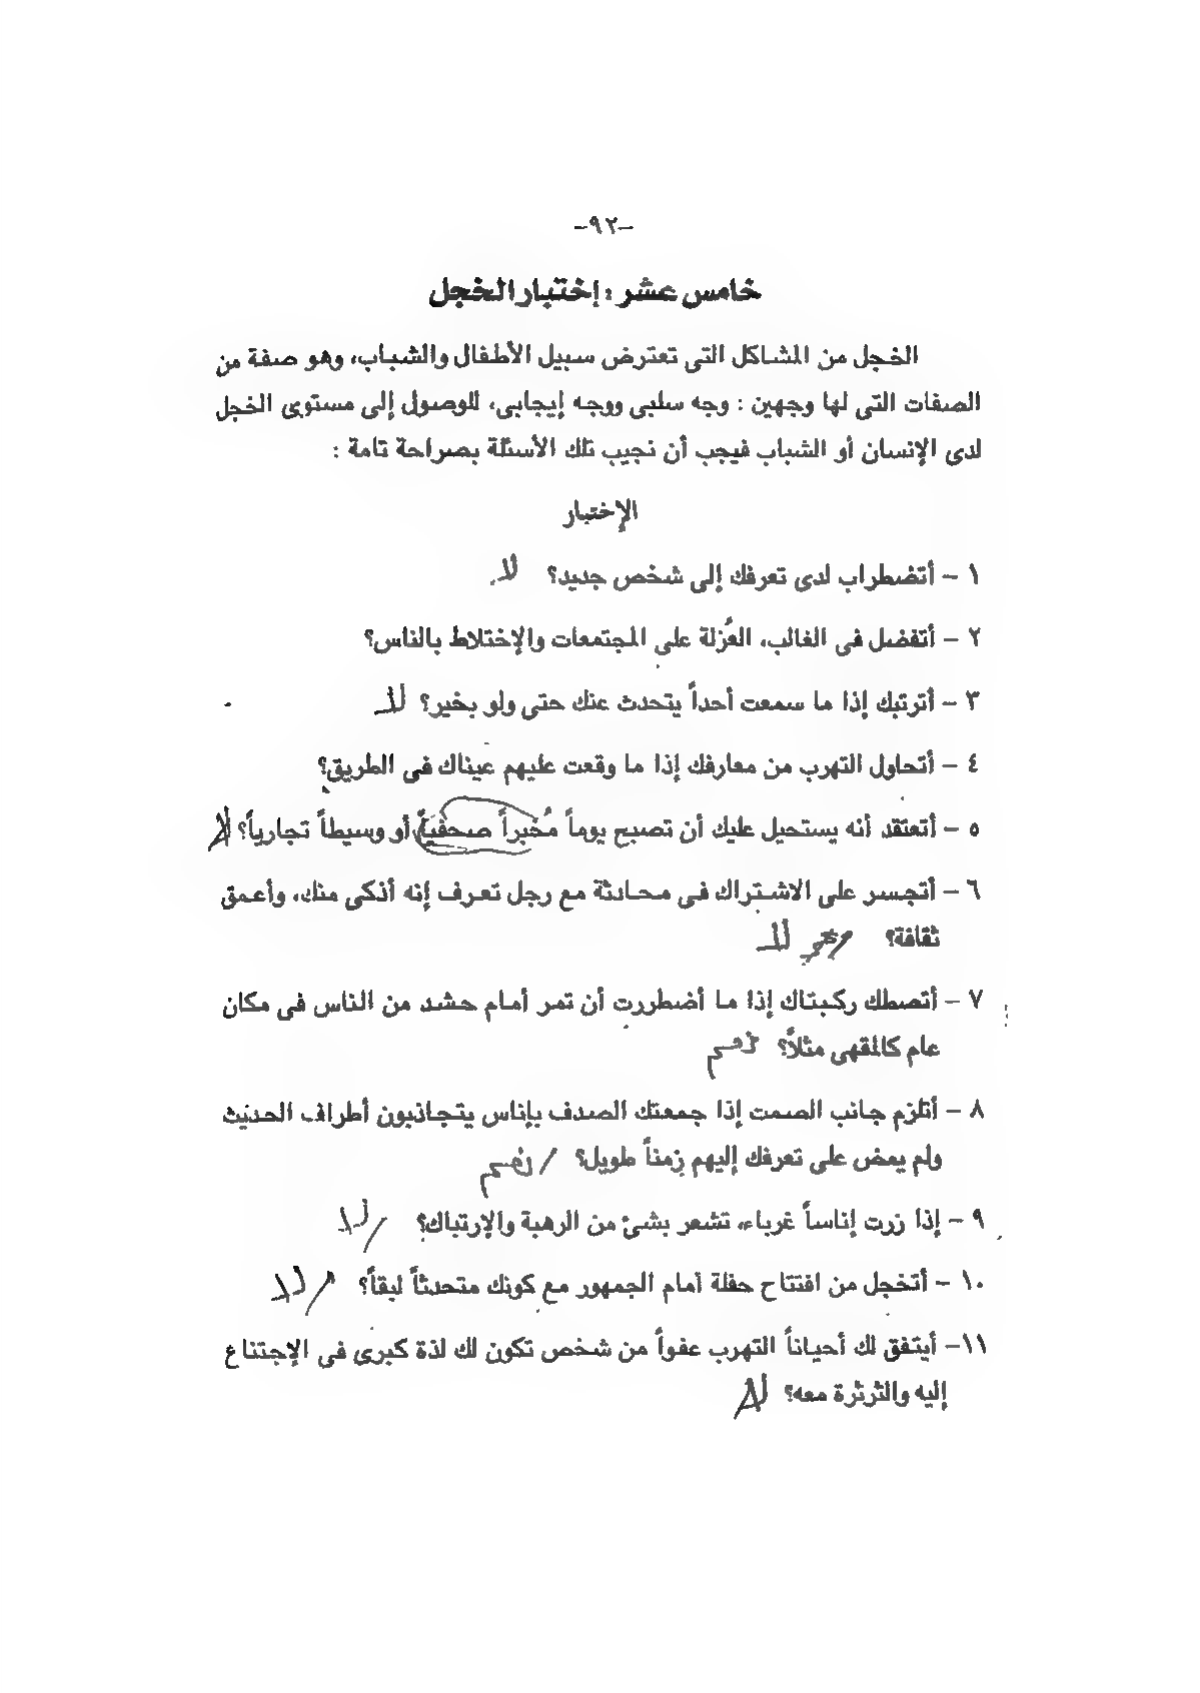 -٩٢-
خامس عشر : إختبار الخجل
الخجل من المشاكل التى تعترض سبيل الأطفال والشباب، وهو صفة من
الصفات التى لها وجهين : وجه سلبى ووجه إيجابى، للوصول إلى مستوى الخجل
لدى الإنسان أو الشباب فيجب أن نجيب تلك الأسئلة بصراحة تامة :
الإختبار
١ – أتضطراب لدى تعرفك إلى شخص جديد؟ لا
٢ – أتفضل فى الغالب، العُزلة على المجتمعات والإختلاط بالناس؟
٣ – أترتبك إذا ما سمعت أحداً يتحدث عنك حتى ولو بخير؟ لا
٤ – أتحاول التهرب من معارفك إذا ما وقعت عليهم عيناك فى الطريق؟
٥ – أتعتقد أنه يستحيل عليك أن تصبح يوماً مُخبراً صحفياً أو وسيطاً تجارياً؟ لا
٦ – أتجسر على الاشتراك فى محادثة مع رجل تعرف إنه أذكى منك، وأعمق
ثقافة؟ لا
٧ – أتصطك ركبتاك إذا ما أضطررت أن تمر أمام حشد من الناس فى مكان
عام كالمقهى مثلاً؟ نعم
٨ – أتلزم جانب الصمت إذا جمعتك الصدف بإناس يتجاذبون أطراف الحديث
ولم يمض على تعرفك إليهم زمناً طويل؟ / نعم
٩ – إذا زرت إناساً غرباء، تشعر بشئ من الرهبة والإرتباك؟ / لا
١٠ – أتخجل من افتتاح حفلة أمام الجمهور مع كونك متحدثاً لبقاً؟ / لا
١١– أيتفق لك أحياناً التهرب عفواً من شخص تكون لك لذة كبرى فى الإجتناع
إليه والثرثرة معه؟ لا